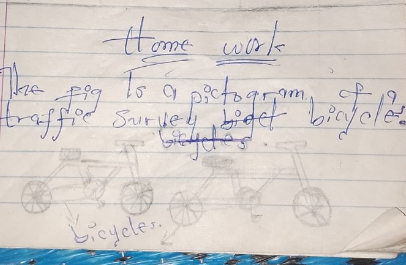 Home work
The fig is a pictogram of a
traffic survey bicycles.
bicycles
bicycles.